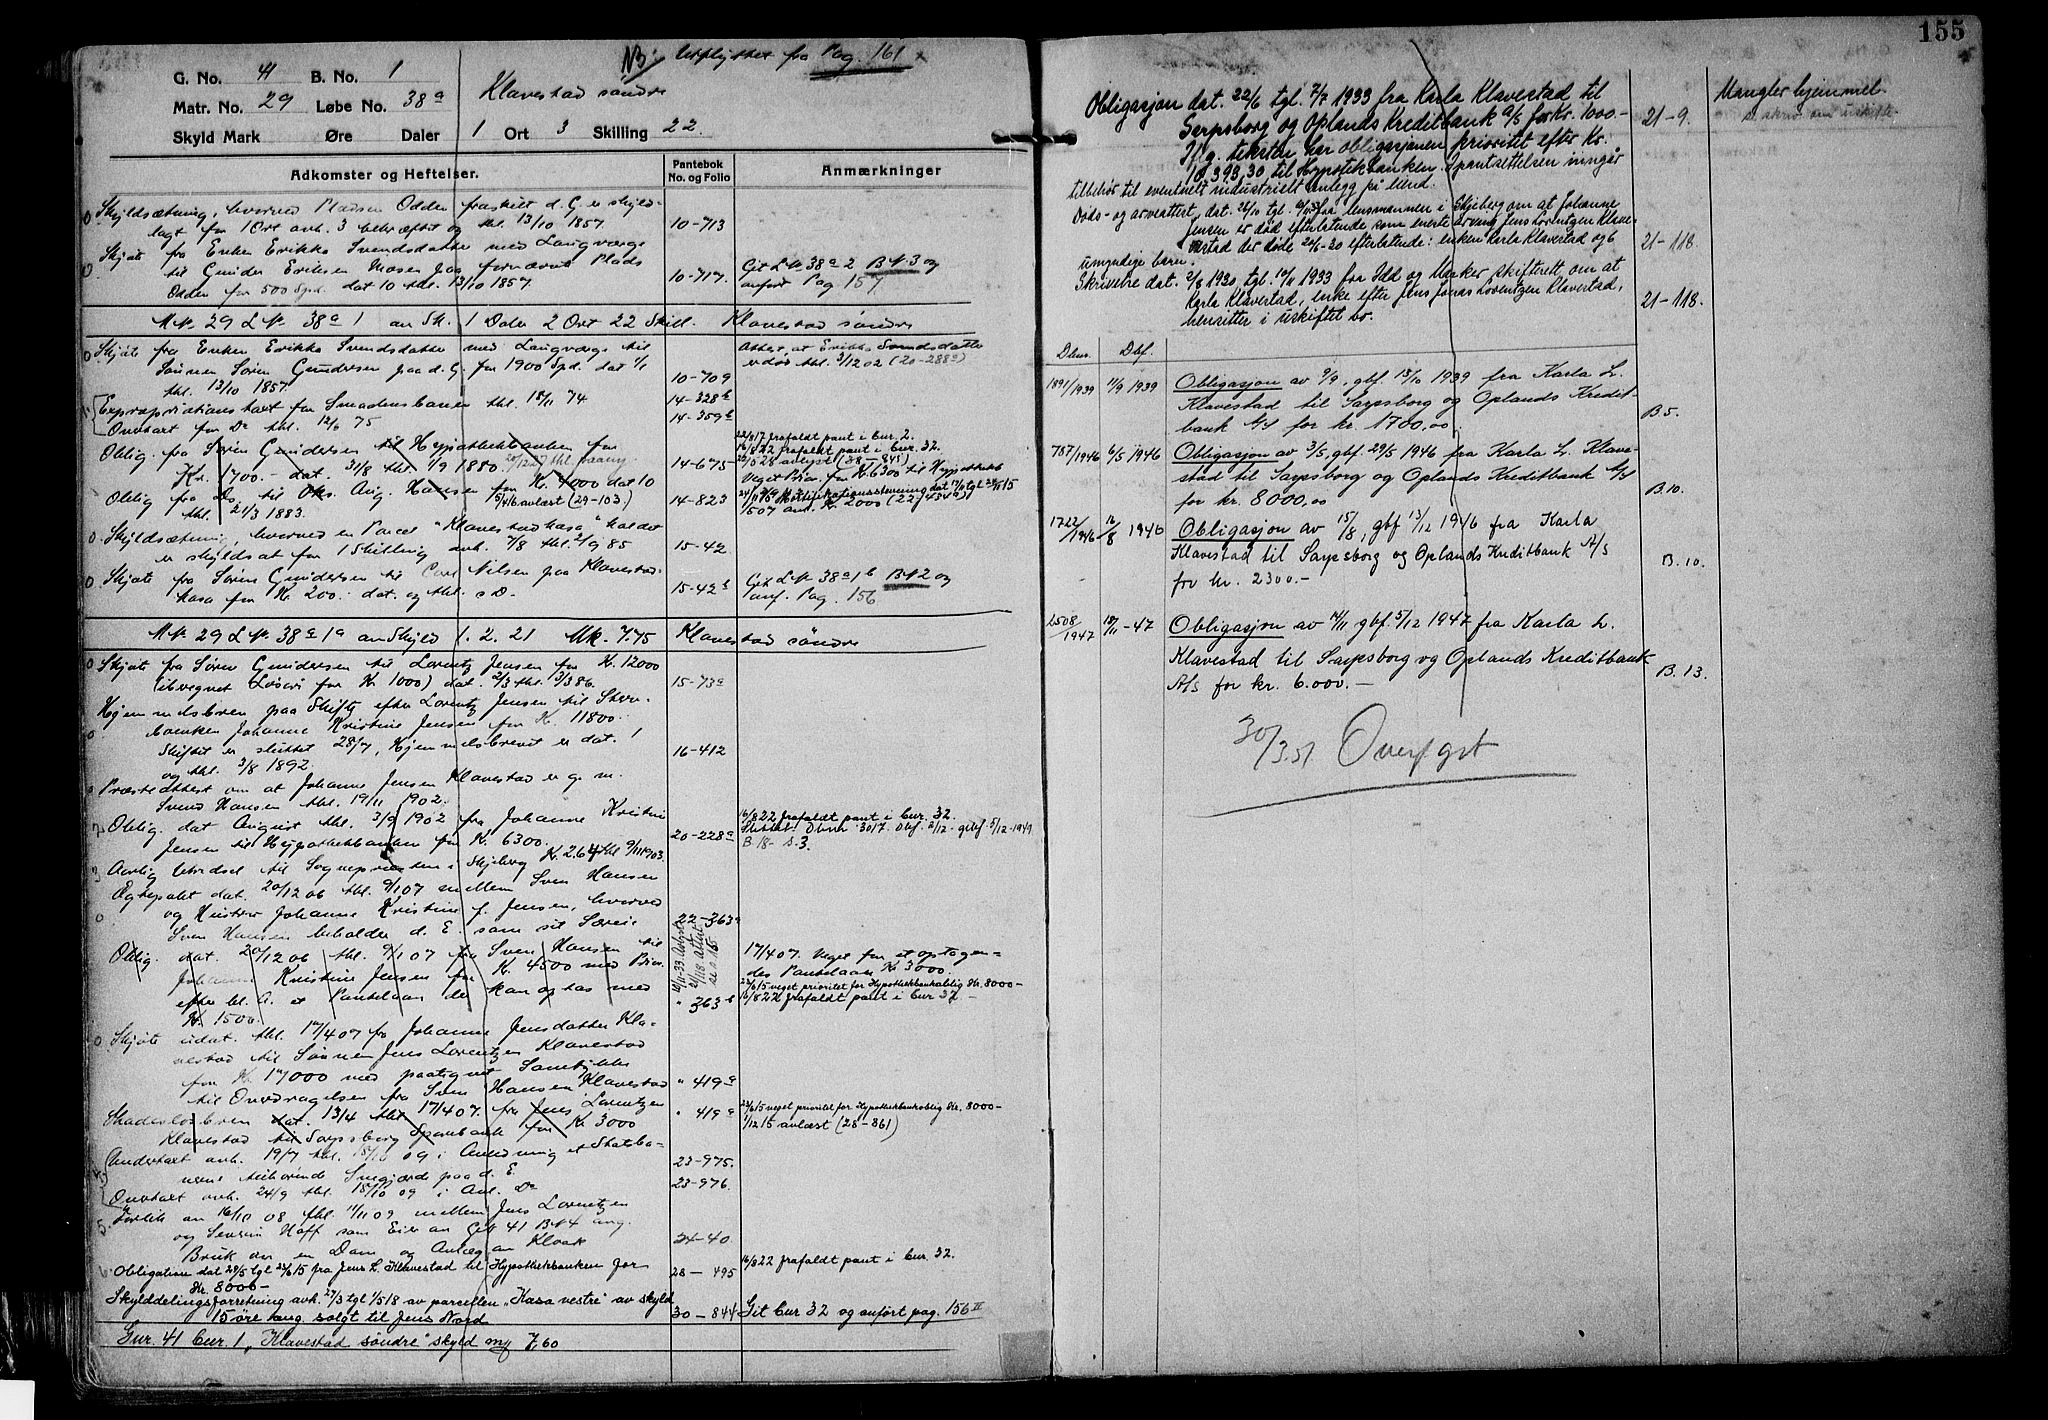 NB: Utflyttet fra Pag. 161
G. No. 41 B. No. 1
Matr. No. 29 Løbe No. 38a Klavestad søndre
Skyld Mark Øre Daler 1 Ort 3 Skilling 22.
Adkomster og Heftelser. Pantebok No. og Folio Anmærkninger
Skyldsætning, hvorved Pladsen Odden fraskilt d. G. er skyld-
lagt for 1 Ort avh. 3 bekræftet og thl. 13/10 1857. 10-713
Skjøte fra Enken Erikka Svendsdatter med Laugværge
til Gunder Eriksen Mosen paa fornævnt Plads
Odden for 500 Spd. dat 10 thl. 13/10 1857. 10-717. Git L.No 38a2 BN3 og
anført Pag 157
M.No. 29 L.No. 38a1 av Sk. 1 Daler 2 Ort 22 Skill. Klavestad søndre
Skjøte fra Enken Erikka Svendsdatter med Laugværge til
Sønnen Søren Gundersen paa d. G. for 1900 Spd. dat
thl. 13/10 1857. 10-709
Attest, at Erikka Svendsdatter
er død thl. 9/12 02 (20-288a)
1. Expropriationstaxt for Smaalensbanen thl. 18/11 74 14-328b
Overtaxt for Do thl. 12/6 75 14-359b
Oblig. fra Søren Gundersen til Hypothekbanken for
Kr. 1700.- dat. 31/8 thl. 1/9 1880. 14-675
22/8 17 frafaldt pant i bnr. 2.
16/8 22 frafaldt pant i bnr. 32.
22/5 28 avlyst (38-845)
Oblig fra Do. til Oks. Aug. Hansen for Kr. 4000 dat 10
thl. 21/3 1883. 5/4 16 avlæst (29-103.) 14-823
Veget Prior. for Kr. 6300 til Hypothekb
1507 ant. Kr. 2000 (22-454a)
Skyldsætning, hvorved en Parcel "Klavestadkasa" kaldet
er skyldsat for 1 Skilling avh. 7/8 thl. 2/9 85 15-42
Skjøte fra Søren Gundersen til Carl Nilsen paa Klavestad-
kasa for Kr. 200. dat. og thl. s D. 15-42b Git L.No 38a1b BN2 og
anf. Pag. 156
M.No. 29 L.No. 38a1a av Skyld 1. 2. 21 Mk. 7.75 Klavestad søndre
Skjøte fra Søren Gundersen til Lorentz Jensen for Kr. 12000
(iberegnet Løsøre for Kr 1000) dat. 2/3 thl. 3/3 86. 15-73a
Hjemmelsbrev paa Skifte efter Lorentz Jensen til Stervboenken Johanne Kristine Jensen for Kr. 11800.
Skiftet er sluttet 28/7, Hjemmelsbrevet er dat. 1
og thl. 3/8 1892. 16-412
Præsteattest om at Johanne Jensen Klavestad er g. m.
Svend Hansen thl. 19/11 1902.
2 Oblig. dat August thl. 3/9 1902 fra Johanne Kristine
Jensen til Hypothekbanken for Kr. 6300. 20-228a
16/8 22 frafaldt pant i bnr. 32.
Slettet: Dbnr. 3017. Dbf. 2/12. gbf 5/12-1949.
B. 18- s. 3.
3 Aarlig Utredsel til Sognepresten i Skjeberg Kr. 2.64 thl 9/11 1903.
Egtepakt dat. 20/12 06 thl. 9/1 07 mellem Sven Hansen
og Hustru Johanne Kristine f. Jensen, hvorved
Sven Hansen beholder d. E. som sit Særeie 22-363a
Oblig. dat. 20/12 06 thl. 9/1 07 fra Sven Hansen til
Johanne Kristine Jensen for Kr. 4500 med Prior.
efter bl. A. et Pantelaan der kan optas med
Kr. 1500. " 363b
17/4 07. Veget for et optagen-
des Pantelaan Kr 3000.
23/6 15 veget prioritet for Hypothekbankoblig Kr. 8000-
16/8 22 frafaldt pant i bnr 32 -
Skjøte udat. thl. 17/4 07 fra Johanne Jensdatter Kla-
vestad til Sønnen Jens Lorentzen Klavestad
for Kr. 17000 med paategnet Samtykke
til Overdragelsen fra Sven Hansen Klavestad " 419a
Skadesløsbrev dat. 13/4 thl. 17/4 07. fra Jens Lorentzen
Klavestad til Sarpsborg Sparebank for Kr. 3000 " 419a
23/6 15 veget prioritet for Hypothekbankoblig Kr. 8000-
1/12 15 avlæst (28-861)
Undertaxt avh. 19/7 thl. 15/10 09 i Anledning et Statsba-
nene tilhørende Smigjærde paa d. E. 23-975.
Overtaxt avh. 24/9 thl. 15/10 09 i Anl. Do 23-976.
5. Forlik av 16/10 08 thl. 11/11 09 mellem Jens Lorentzen
og Severin Hoff som Eier av GN 41 BN4 ang.
Bruk av en Dam og Anlæg av Kloak 24-40
6. Obligation dat 28/5 tgl 23/6 15 fra Jens L. Klavestad til Hypothekbanken for
Kr. 8000- 28 - 495 16/8 22 frafaldt pant i bnr. 32.
Skylddelingsforretning avh. 27/3 tgl 1/5 18 av parcellen "Kasa vestre" av skyld
15 øre ang. solgt til Jens Nord 30 - 844 Git bnr 32 og anført pag. 156 II
Gnr. 41 bnr. 1 "Klavestad søndre" skyld my 7,60
155
Obligasjon dat. 22/6 tgl. 7/7 1933 fra Karla Klavestad til
Sarpsborg og Oplands Kreditbank A/S for Kr. 1000.- 21-9. Mangler hjemmel.
Iflg. teksten har obligasjonen prioritet efter Kr.
10.393,30 til Hypotekbanken. I pantsettelsen inngår
tilbehør til eventuelt industrielt anlegg på eiend.
Døds- og arveattest, dat. 26/10 tgl. fra lensmannen i Skjeberg om at Johanne
Jensen er død efterlatende som eneste arving Jens Lorentzen Klave-
stad der døde 20/6-20 efterlatende: enken Karla Klavestad og 6
umyndige barn. 21-118.
Skrivelse dat. 2/8 1920 tgl. 10/11 1933 fra Idd og Marker skifterett om at
Karla Klavestad, enke efter Jens Jonas Lorentzen Klavestad,
hensitter i uskiftet bo. 21-118.
Dbnr. Dbf.
1891/1939 11/9 1939 Obligasjon av 9/9, gbf. 13/10 1939 fra Karla L.
Klavestad til Sarpsborg og Oplands Kredit-
bank A/S for kr. 1700,00 B 5.
787/1946 6/5 1946 Obligasjon av 3/5, gbf 29/5 1946 fra Karla L. Klave-
stad til Sarpsborg og Oplands Kreditbank A/S
for kr. 8000,00 B. 10.
1722/1946 16/8 1946 Obligasjon av 15/8, gbf 13/12 1946 fra Karla
Klavestad til Sarpsborg og Oplands Kreditbank A/S
for kr. 2300.- B. 10.
2508/1947 18/11 -47 Obligasjon av 14/11 gbf. 5/12 1947 fra Karla L.
Klavestad til Sarpsborg og Oplands Kreditbank
A/S for kr. 6.000.- B. 13.
30/3.51 Overført